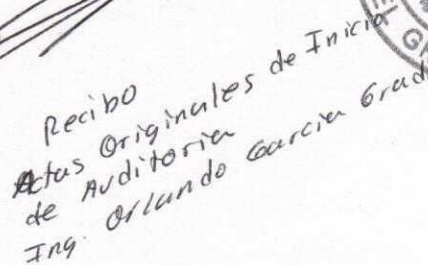 Recibo
Actas Originales de Inicio
de Auditoria
Ing. Orlando Garcia Gradi
EL GR